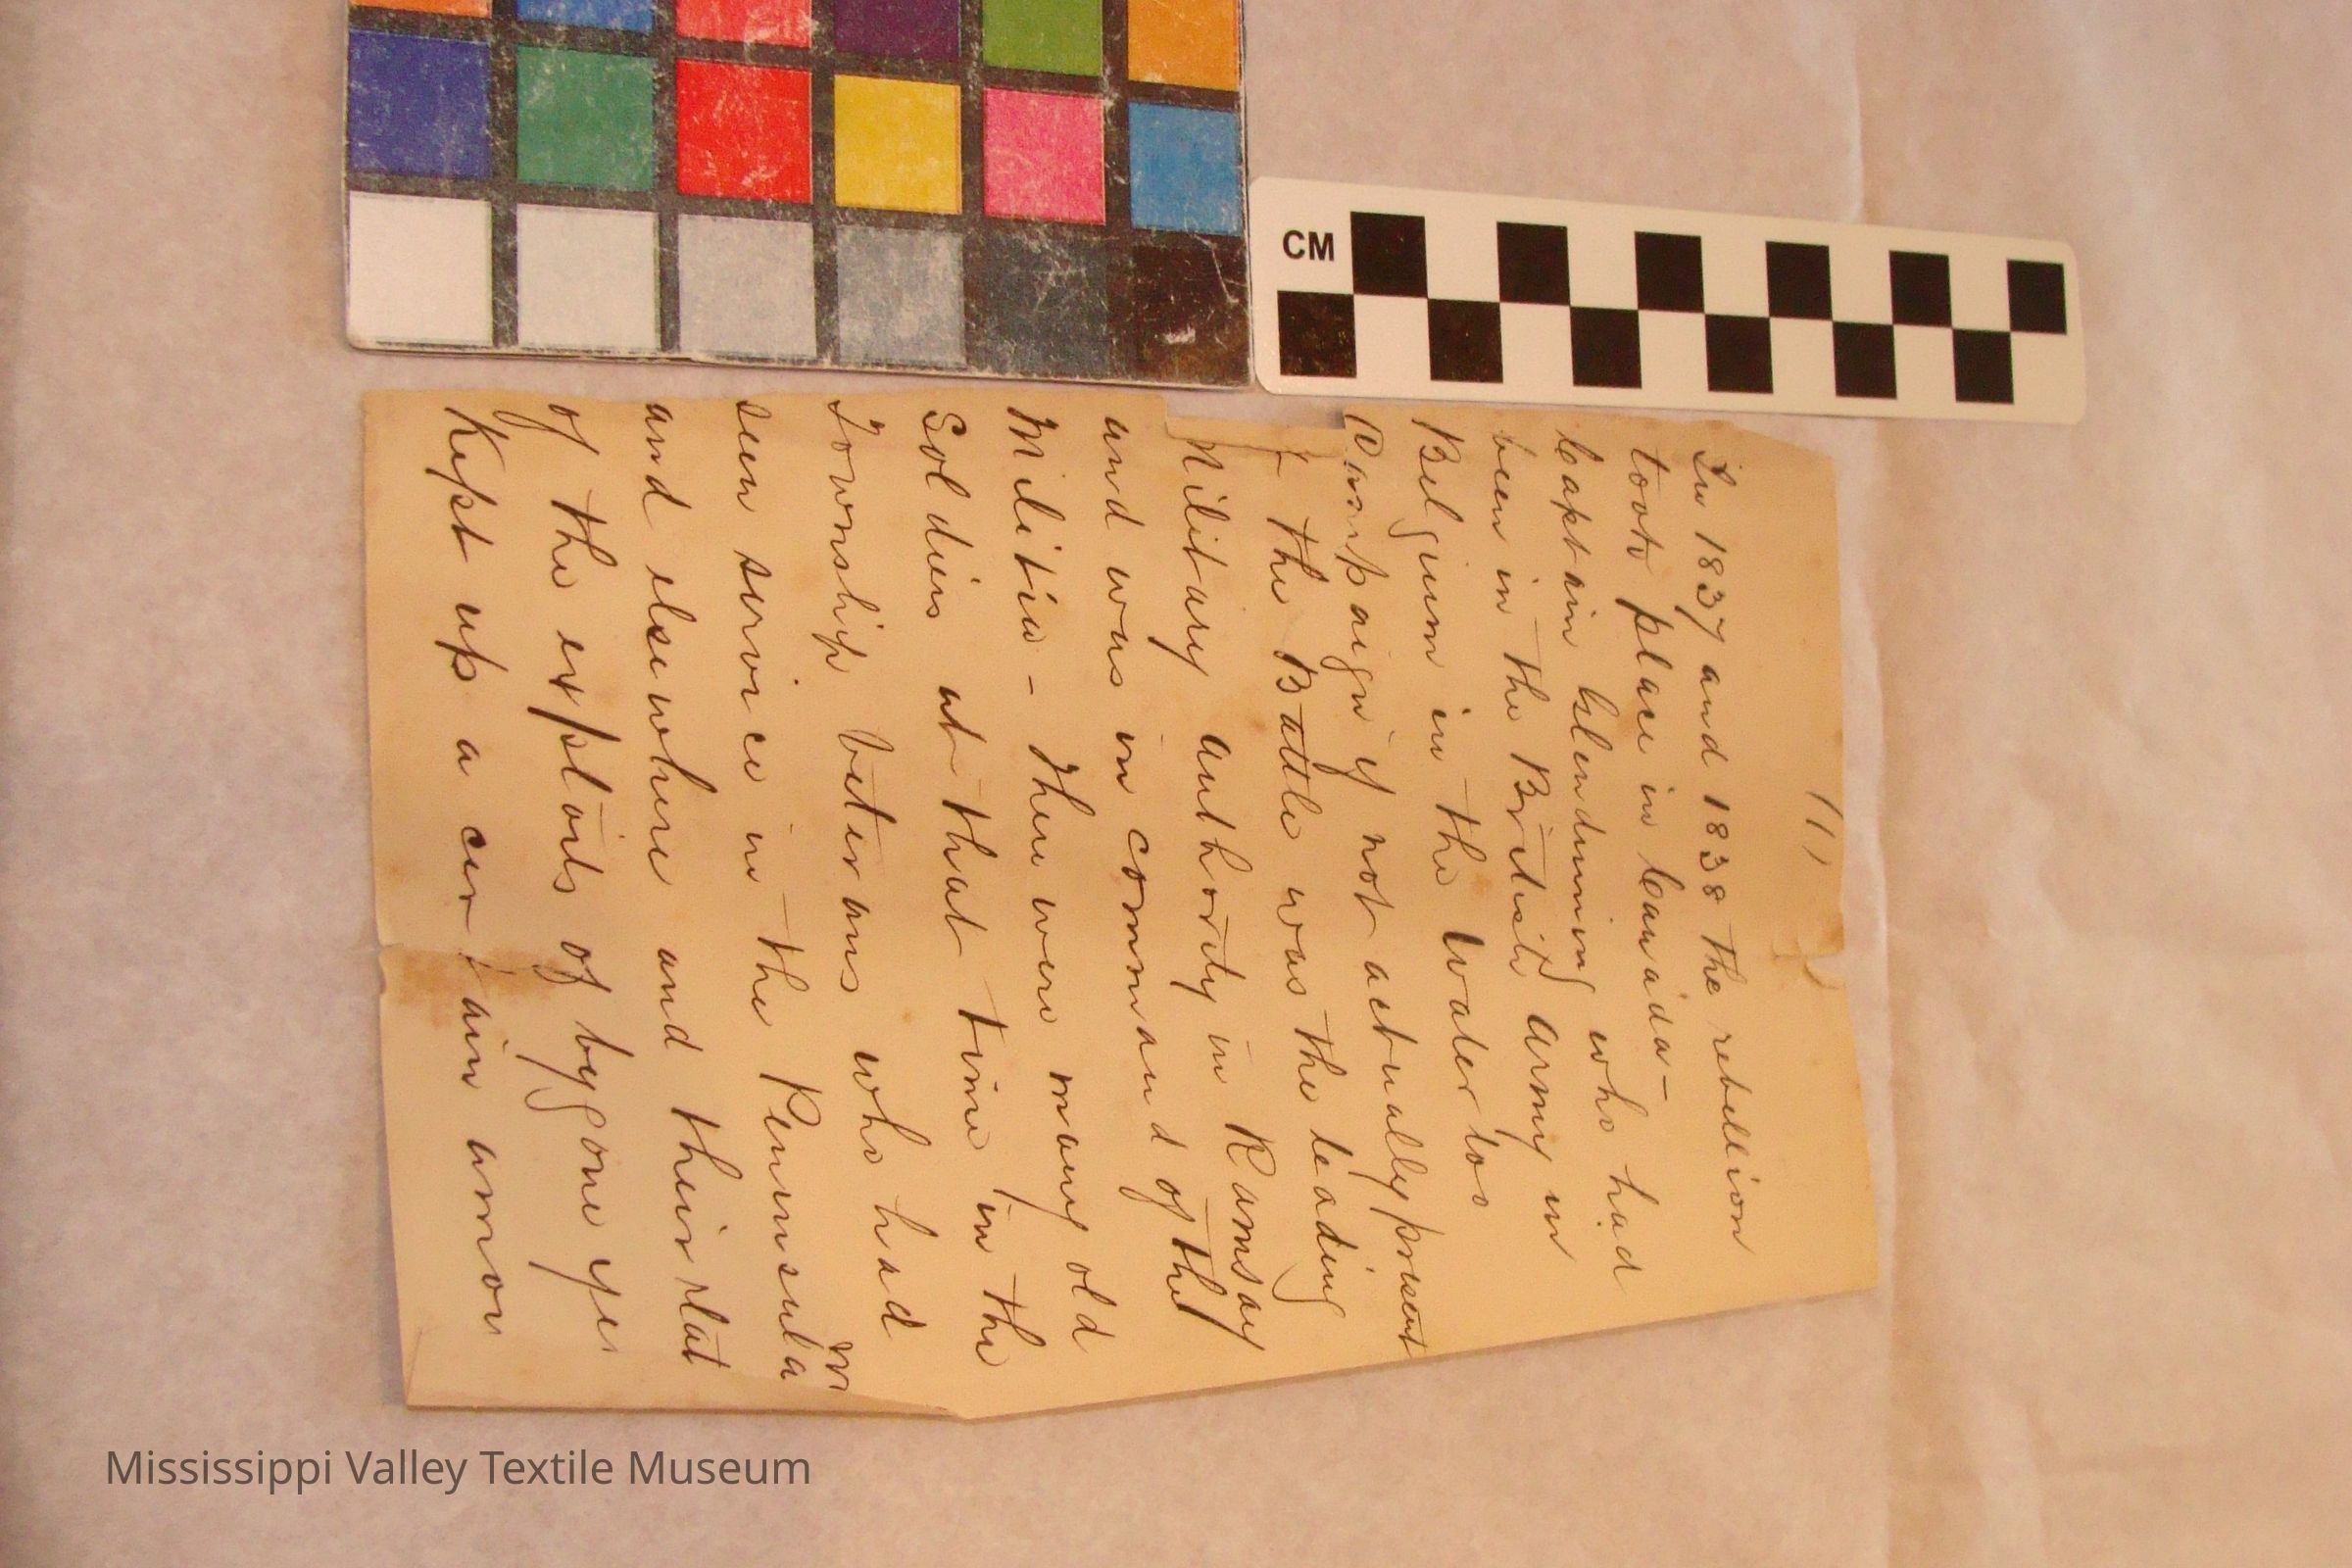 (1)
In 1837 and 1838 the rebellion
took place in Canada—
Captain Glendinning who had
been in the British army in
Belgium in the Waterloo
Campaign if not actually present
at the Battle was the leading
Military authority in Ramsay
and was in command of the
Militia - There were many old
Soldiers at that time in the
Township veterans who had
seen service in the Peninsula
and elsewhere and their
of the exploits of bygone
Kept up a certain
CM
Mississippi Valley Textile Museum